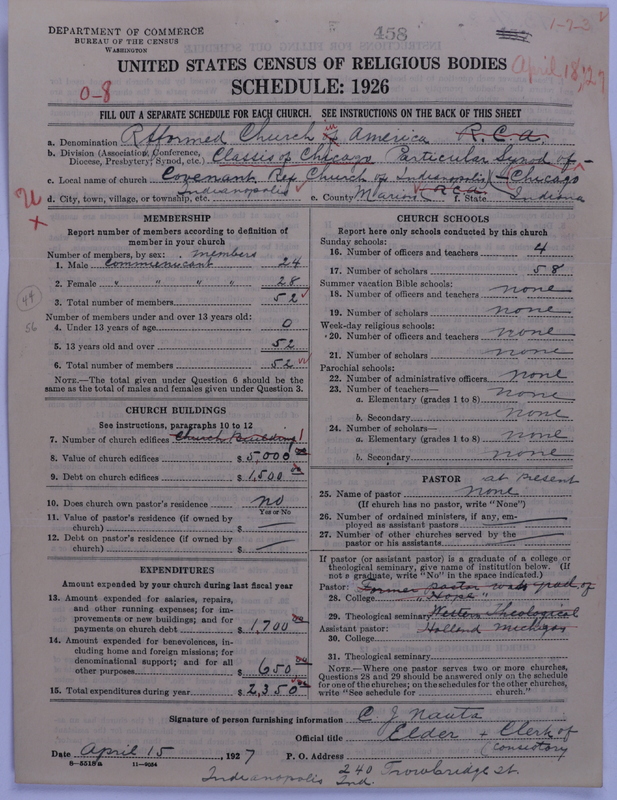 DEPARTMENT OF COMMERCE
BUREAU OF THE CENSUS
WASHINGTON
458
1-7-3
UNITED STATES CENSUS OF RELIGIOUS BODIES
SCHEDULE: 1926
April 18, 27
0-8
FILL OUT A SEPARATE SCHEDULE FOR EACH CHURCH. SEE INSTRUCTIONS ON THE BACK OF THIS SHEET
a. Denomination Reformed Church in America R.C.A.
b. Division (Association, Conference, Diocese, Presbytery, Synod, etc.) Classis of Chicago Particular Synod of
c. Local name of church Covenant Ref Church of Indianapolis Chicago
d. City, town, village, or township, etc. Indianapolis e. County Marion R.C.A. f. State Indiana
MEMBERSHIP
Report number of members according to definition of
member in your church
Number of members, by sex: members
1. Male communicant 24
2. Female " " " " 28
3. Total number of members 52
Number of members under and over 13 years old:
4. Under 13 years of age 0
5. 13 years old and over 52
6. Total number of members 52
NOTE.—The total given under Question 6 should be the
same as the total of males and females given under Question 3.
44
56
CHURCH BUILDINGS
See instructions, paragraphs 10 to 12
7. Number of church edifices Church Building 1
8. Value of church edifices $ 5,000 00
9. Debt on church edifices $ 1,500 00
10. Does church own pastor's residence no
Yes or No
11. Value of pastor's residence (if owned by
church) $
12. Debt on pastor's residence (if owned by
church) $
EXPENDITURES
Amount expended by your church during last fiscal year
13. Amount expended for salaries, repairs,
and other running expenses; for im-
provements or new buildings; and for
payments on church debt $ 1,700 00
14. Amount expended for benevolences, in-
cluding home and foreign missions; for
denominational support; and for all
other purposes $ 650 00
15. Total expenditures during year $ 2,350 00
CHURCH SCHOOLS
Report here only schools conducted by this church
Sunday schools:
16. Number of officers and teachers 4
17. Number of scholars 58
Summer vacation Bible schools:
18. Number of officers and teachers none
19. Number of scholars none
Week-day religious schools:
20. Number of officers and teachers none
21. Number of scholars none
Parochial schools:
22. Number of administrative officers none
23. Number of teachers—
a. Elementary (grades 1 to 8) none
b. Secondary none
24. Number of scholars—
a. Elementary (grades 1 to 8) none
b. Secondary none
PASTOR at present
25. Name of pastor none
(If church has no pastor, write "None")
26. Number of ordained ministers, if any, em-
ployed as assistant pastors
27. Number of other churches served by the
pastor or his assistants
If pastor (or assistant pastor) is a graduate of a college or
theological seminary, give name of institution below. (If
not a graduate, write "No" in the space indicated.)
Pastor: Former Pastor was grad of
28. College "Hope"
29. Theological seminary Western Theological
Assistant pastor: Holland Michigan
30. College
31. Theological seminary
NOTE.—Where one pastor serves two or more churches,
Questions 28 and 29 should be answered only on the schedule
for one of the churches; on the schedules for the other churches,
write "See schedule for church."
Signature of person furnishing information C J Nauta
Official title Elder + Clerk of
Consistory
Date April 15, 1927 P. O. Address 240 Trowbridge st.
8-5518a 11-9034
Indianapolis Ind.